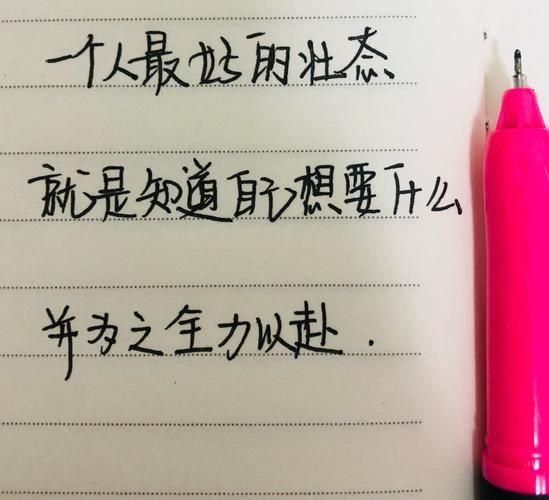 一个人最好的状态
就是知道自己想要什么
并为之全力以赴.